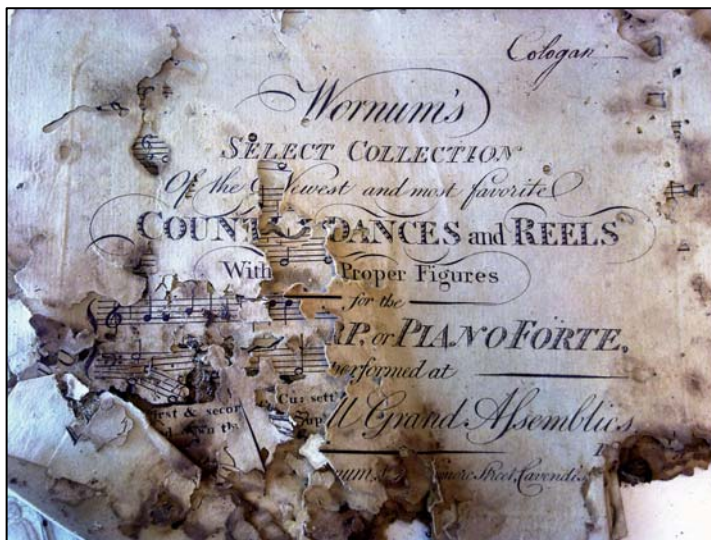 Cologan
Wornum's
SELECT COLLECTION
Of the Newest and most favorite
COUNT DANCES and REELS
With Proper Figures
for the
RP, or PIANO FORTE,
performed at
ll Grand Assemblies
irst & secon
down th
Cur sett
up
num Street Cavendis